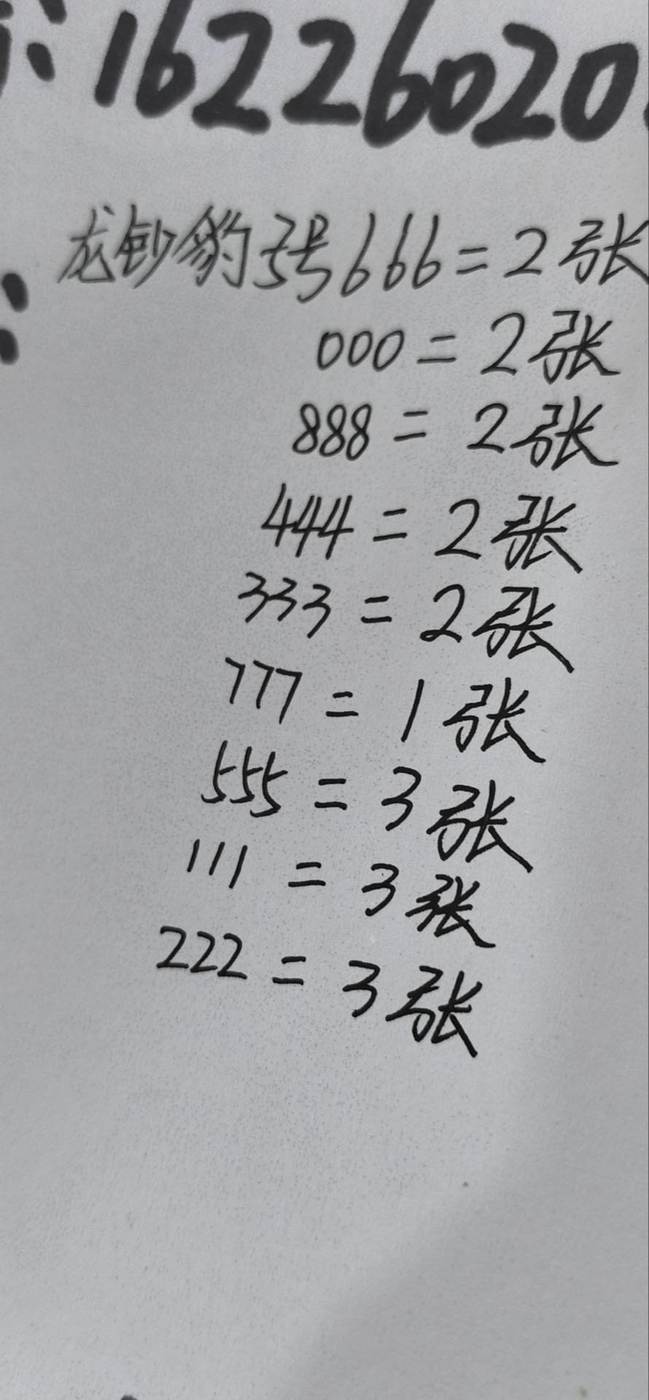 : 16226020
龙钞豹子号666=2张
000=2张
888=2张
444=2张
333=2张
777=1张
555=3张
111=3张
222=3张